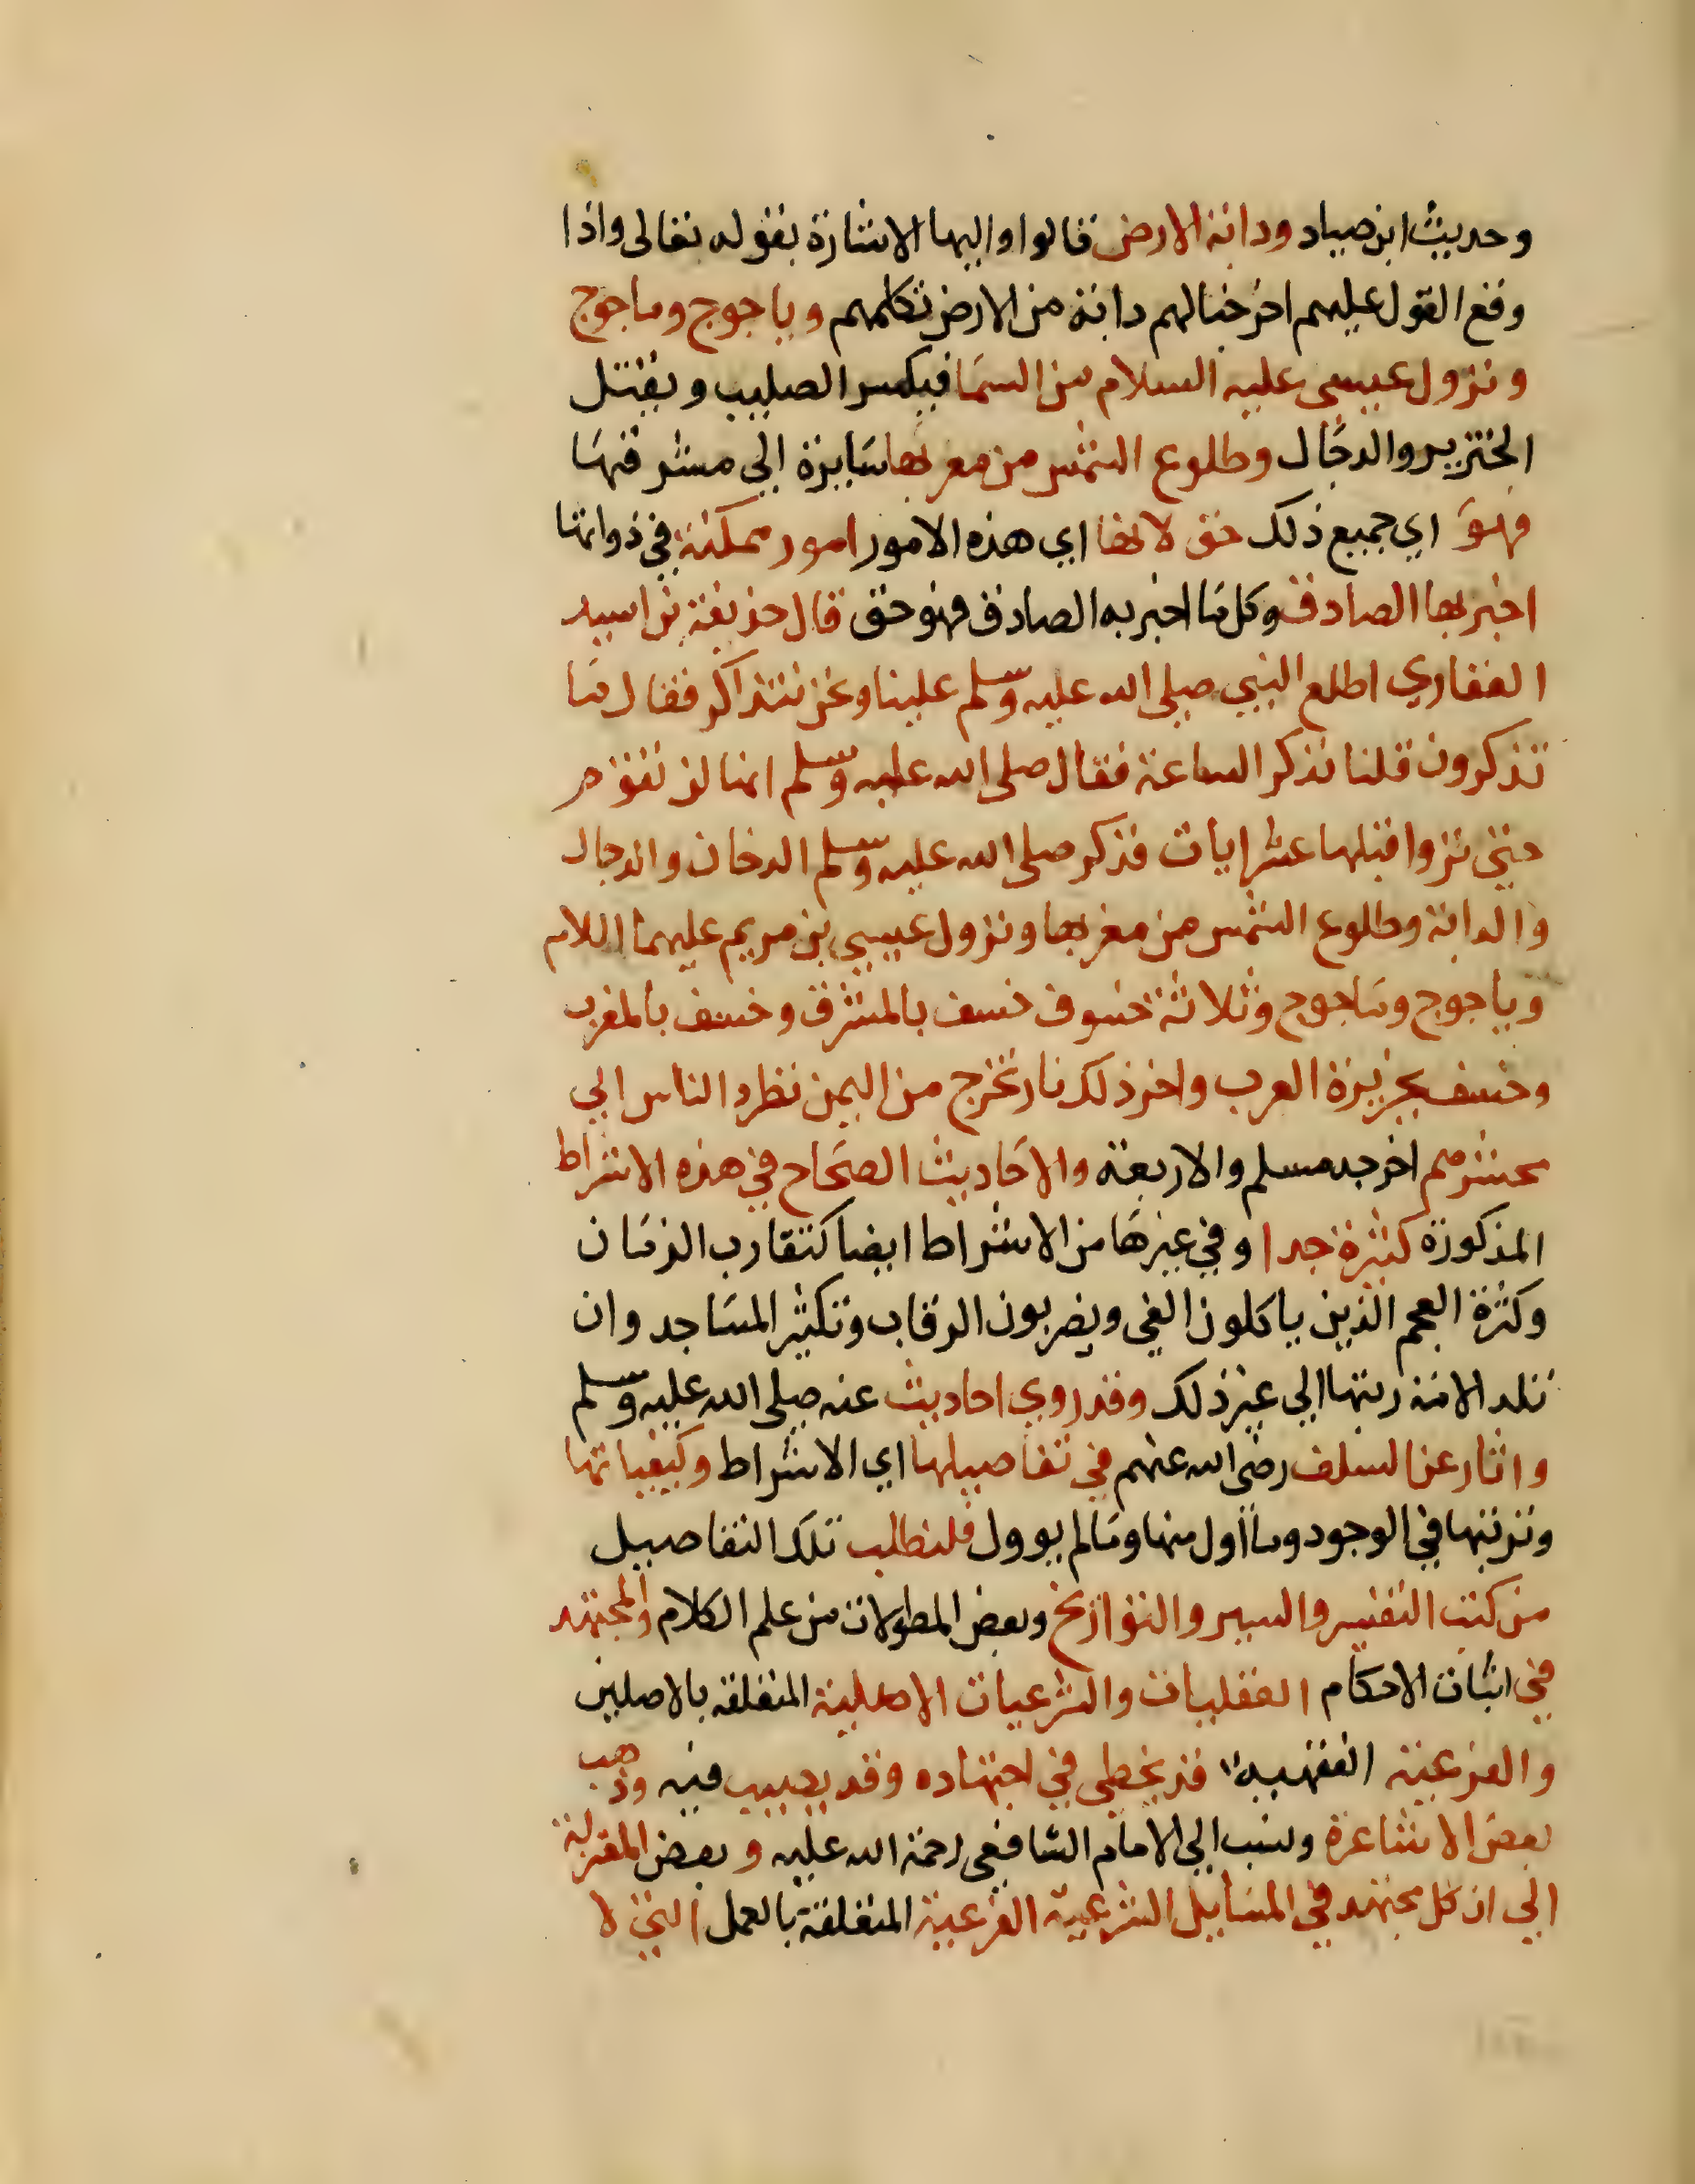 وحديث ابن صياد ودابة الارض قالوا واليها الاشارة بقوله تعالى واذا
وقع القول عليهم اخرجنا لهم دابة من الارض تكلمهم وياجوج وماجوج
ونزول عيسى عليه السلام من السما فيكسر الصليب ويقتل
الخنزير والدجال وطلوع الشمس من مغربها سايرة الي مشرقها
فهو اي جميع ذلك حق لانها اي هذه الامور امور ممكنة في ذواتها
اخبر بها الصادق وكل ما اخبر به الصادق فهو حق قال حذيفة بن اسيد
الغفاري اطلع النبي صلى الله عليه وسلم علينا ونحن نتذاكر فقال ما
تذكرون قلنا نذكر الساعة فقال صلى الله عليه وسلم انها لن تقوم
حتي تروا قبلها عشر ايات فذكر صلى الله عليه وسلم الدخان والدجال
والدابة وطلوع الشمس من مغربها ونزول عيسي بن مريم عليهما اللام
وياجوج وماجوج وثلاثة خسوف خسف بالمشرق وخسف بالمغرب
وخسف بجزيرة العرب واخر ذلك نار تخرج من اليمن تطرد الناس الي
محشرهم اخرجه مسلم والاربعة والاحاديث الصحاح في هذه الاشراط
المذكورة كثيرة جدا وفي غيرها من الاشراط ايضا كتقارب الزمان
وكثرة العجم الذين ياكلون الفي ويضربون الرقاب وتكثير المساجد وان
تلد الامة ربتها الي غير ذلك وقد روي احاديث عنه صلى الله عليه وسلم
واثار عن السلف رضى الله عنهم في تفاصيلها اي الاشراط وكيفياتها
وترتبها في الوجود وما أول منها وما لم يوول فلتطلب تلك التفاصيل
من كتب التفسير والسير والتواريخ وبعض المطولات من علم الكلام والمجتهد
في اثبات الاحكام العقليات والشرعيات الاصلية المتعلقة بالاصلين
والفرعية الفقهية قد يخطي في اجتهاده وقد يصيب فيه وذهب
بعض الاشاعرة ونسب الي الامام الشافعي رحمة الله عليه وبعض المعتزلة
الي ان كل مجتهد في المسايل الشرعية الفرعية المتعلقة بالعمل التي لا